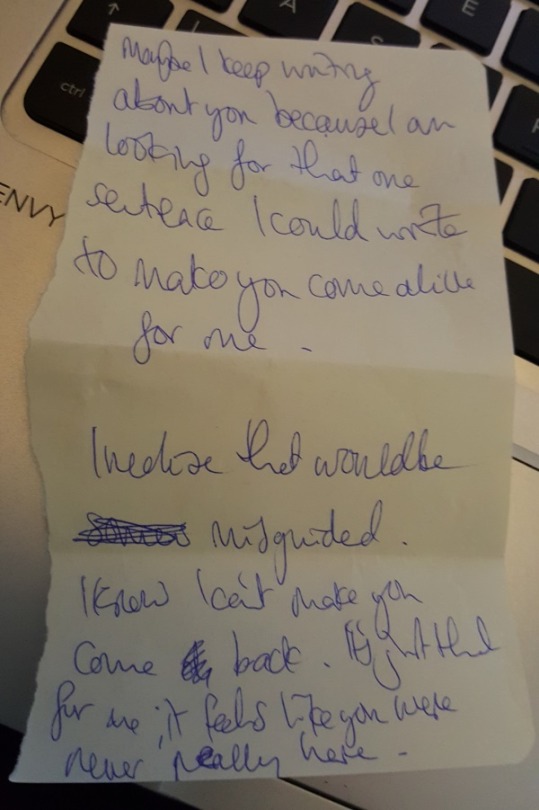 A
E
ctrl
ENVY
Maybe I keep writing
about you because I am
looking for that one
sentence I could write
to make you come alive
for me.
I realise that would be
misguided.
I know I can't make you
come back. It's just that
for me, it feels like you were
never really here.